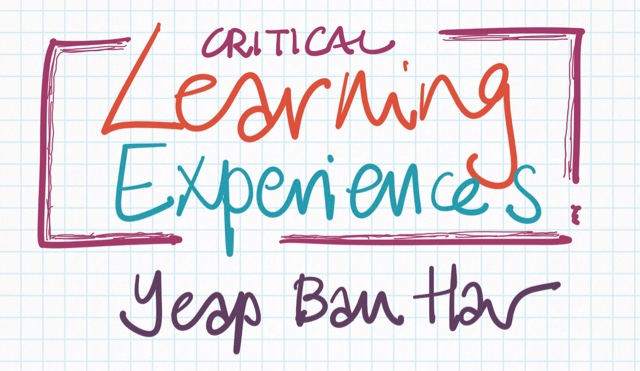 CRITICAL
Learning
Experiences
Yeap Ban Har